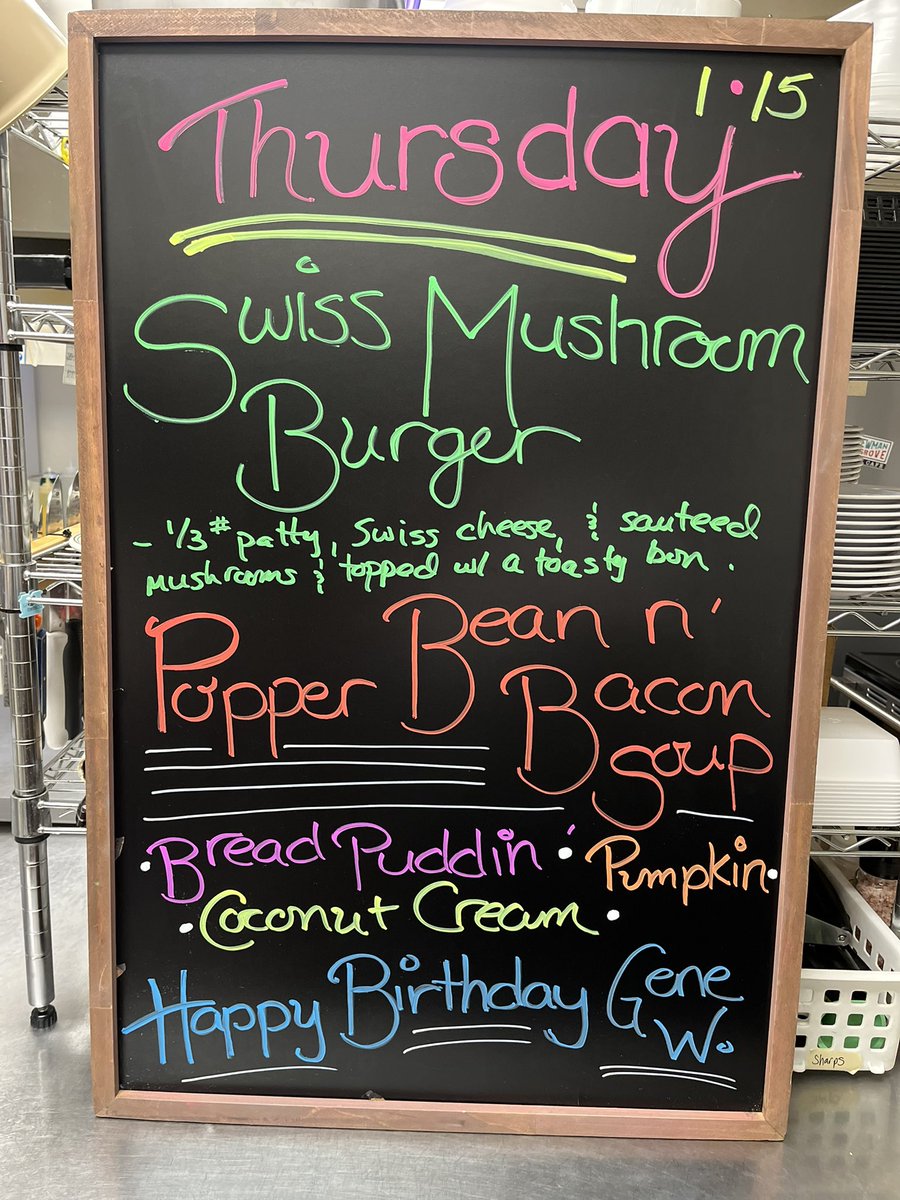 1·15
Thursday
Swiss Mushroom
Burger
- 1/3# patty, Swiss cheese, & sauteed
mushrooms & topped w/ a toasty bun.
Popper Bean n'
Bacon
Soup
Bread Puddin' Pumpkin
Coconut Cream
Happy Birthday Gene
W.
NEWMAN
GROVE
CAFE
Sharps